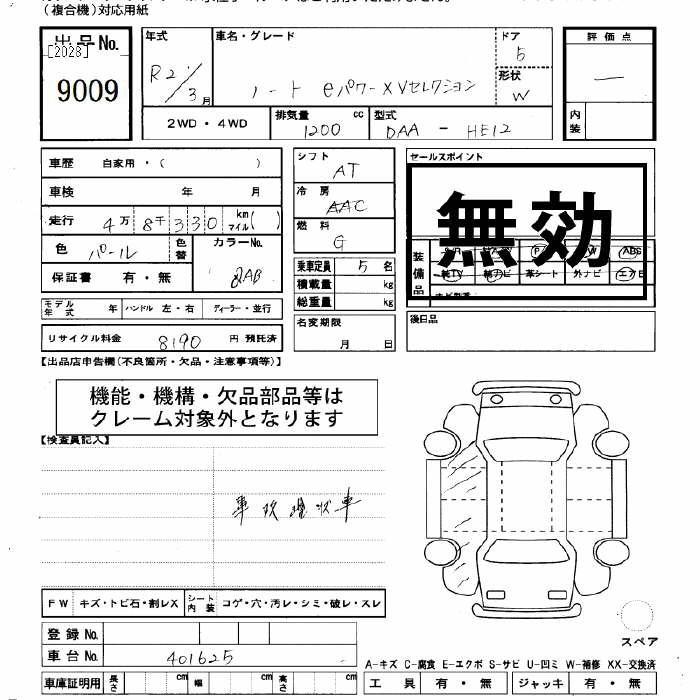 （複合機）対応用紙
出品No.
[2028]
9009
年式
R2/3月
車名・グレード
ノート eパワーXVセレクション
ドア
5
形状
W
評価点
—
内装
2WD・4WD
排気量 1200 cc
型式 DAA - HE12
車歴 自家用・（ ）
車検 年 月
走行 4万8千330 km マイル( )
色 パール
色替
カラーNo. QAB
保証書 有・無
モデル年式 年 ハンドル 左・右 ディーラー・並行
リサイクル料金 8190 円 預託済
シフト AT
冷房 AAC
燃料 G
乗車定員 5 名
積載量 kg
総重量 kg
名変期限
月 日
セールスポイント
無効
装備品
ABS
純TV 純ナビ 革シート 外ナビ エアB
後日品
【出品店申告欄(不良箇所・欠品・注意事項等)】
機能・機構・欠品部品等は
クレーム対象外となります
【検査員記入】
FW キズ・トビ石・割レX シート内装 コゲ・穴・汚レ・シミ・破レ・スレ
登録No.
車台No. 401625
車庫証明用 長さ cm 幅 cm 高さ cm
スペア
A-キズ C-腐食 E-エクボ S-サビ U-凹ミ W-補修 XX-交換済
工具 有・無 ジャッキ 有・無